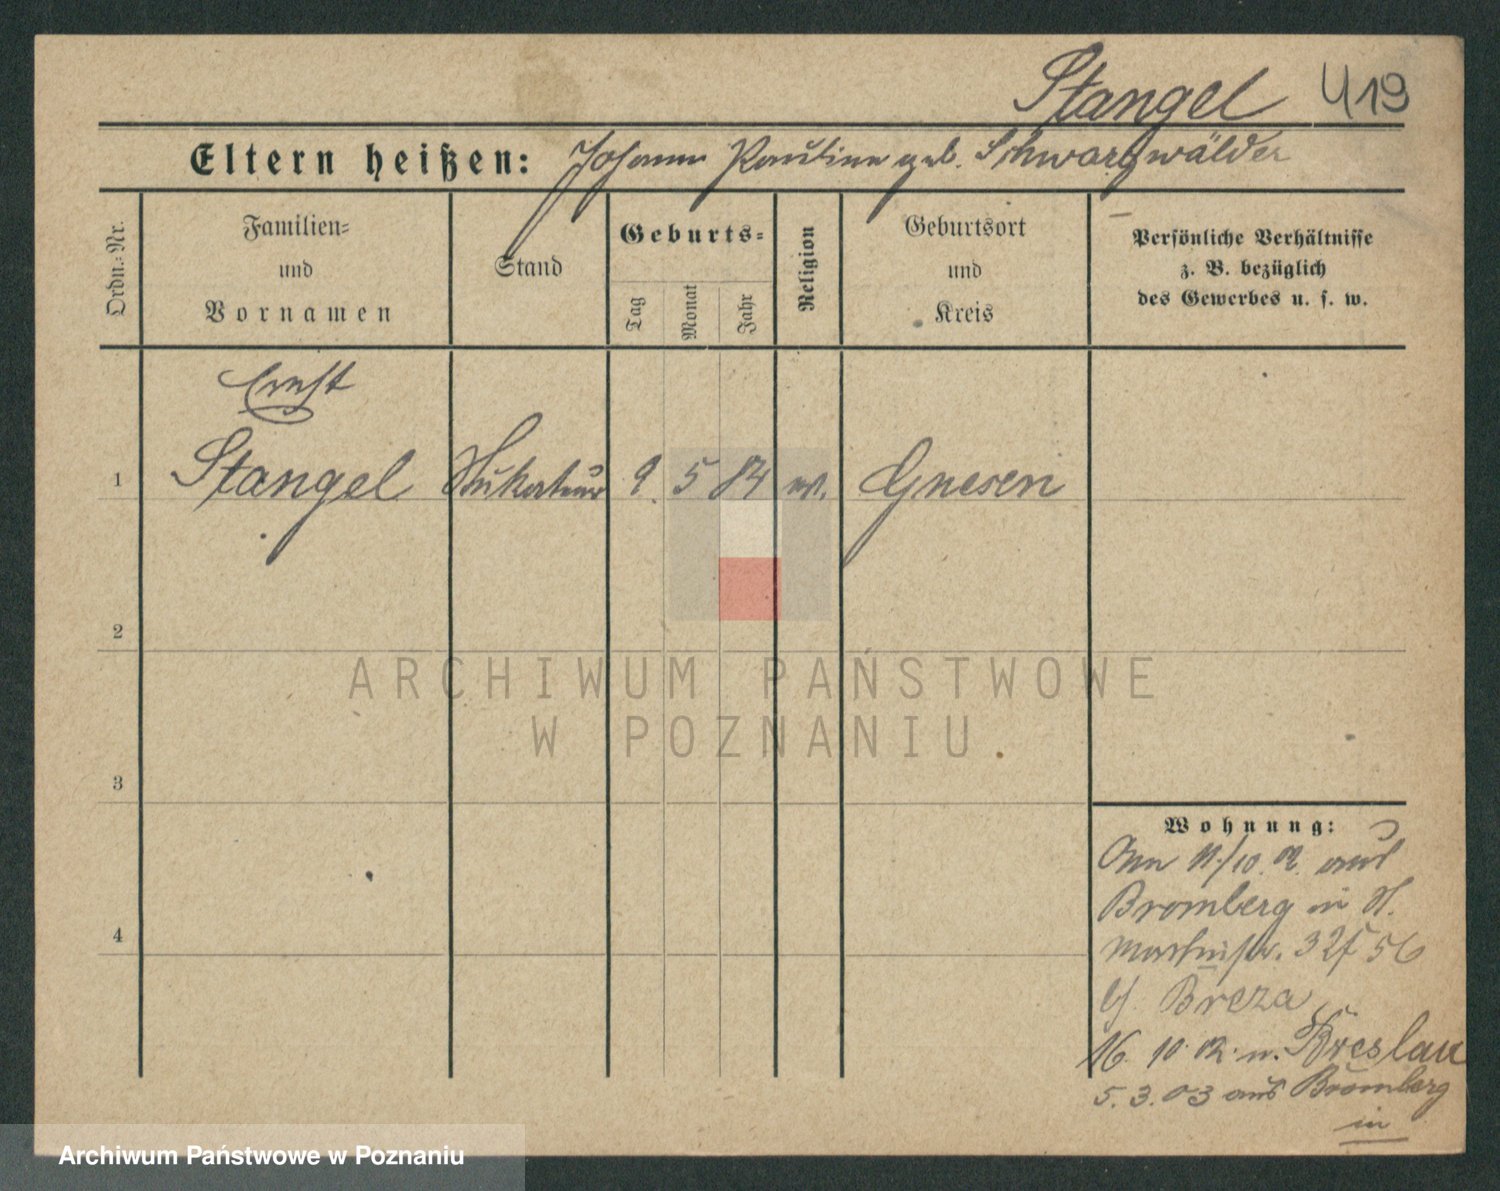 Stangel 419
Eltern heißen: Johann Pauline geb. Schwarzwälder
Ordn.-Nr.
Familien-
und
Vornamen
Stand
Geburts-
Tag
Monat
Jahr
Religion
Geburtsort
und
Kreis
Persönliche Verhältnisse
z. B. bezüglich
des Gewerbes u. s. w.
Ernst
1 Stangel Stukateur 9. 5 84 ev. Gnesen
2
3
4
Wohnung:
Am 11/10. 02. aus
Bromberg in
Martinstr. 56
b/. Breza
16. 10. 02. n. Breslau
5. 3. 03 aus Bromberg
in
ARCHIWUM PAŃSTWOWE
W POZNANIU
Archiwum Państwowe w Poznaniu